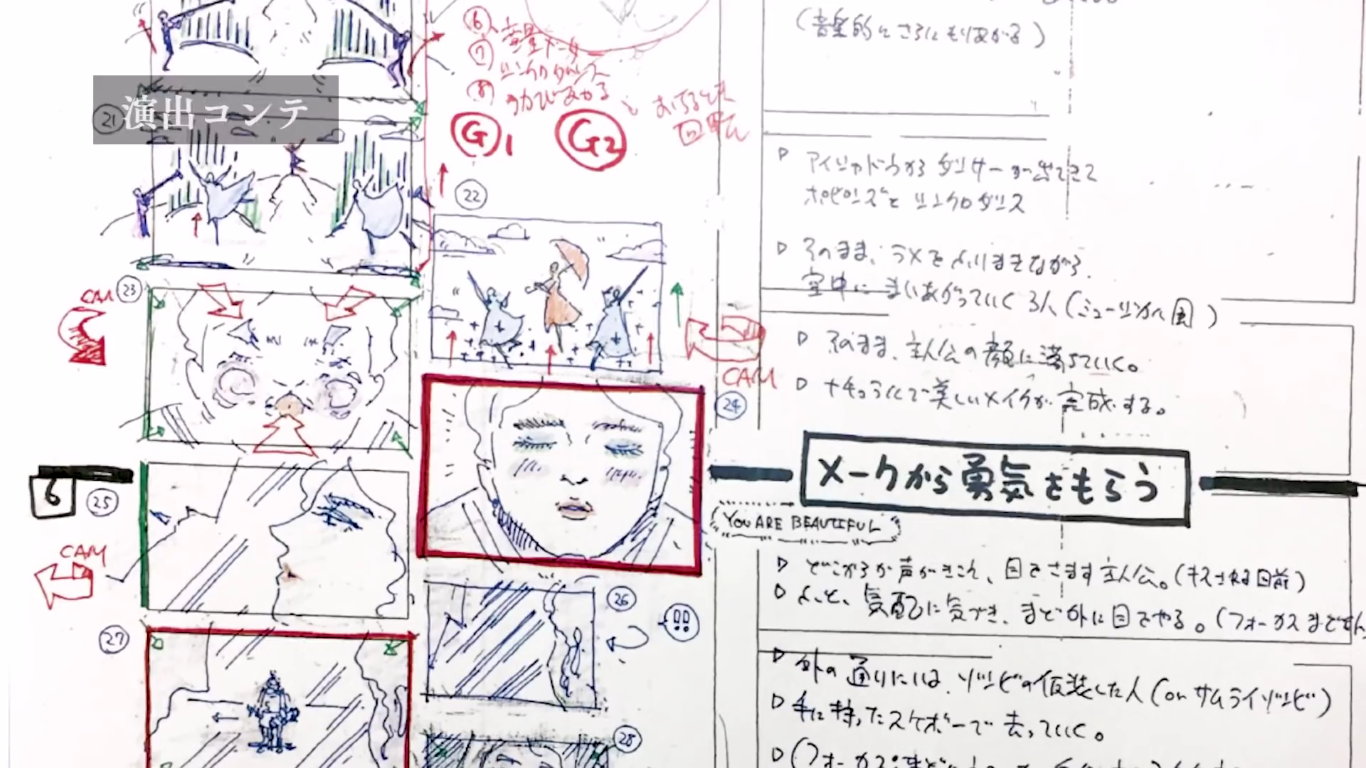 演出コンテ
(音楽的にさらにもりあがる)
⑥
⑦
⑧
G1 G2
21
22
▷アイシャドウからダンサーが出てきて
ポピンズとシンクロダンス
▷そのまま、ラメをふりまきながら、
空中にまいあがっていく3人(ミュージカル風)
23
CAM
CAM
▷そのまま、主人公の顔に満ちていく。
▷ナチュラルで美しいメイクが完成する。
24
6
メークから勇気をもらう
25
YOU ARE BEAUTIFUL
CAM
▷どこからか声がきこえ、目をさます主人公。(キスされる日前)
▷ふと、気配に気づき、まど外に目をやる。(フォーカスまどそと
26
!!
27
▷外の通りには、ゾンビの仮装した人(orサムライゾンビ)
▷手に持ったスケボーで去っていく。
28
▷(フォーカス